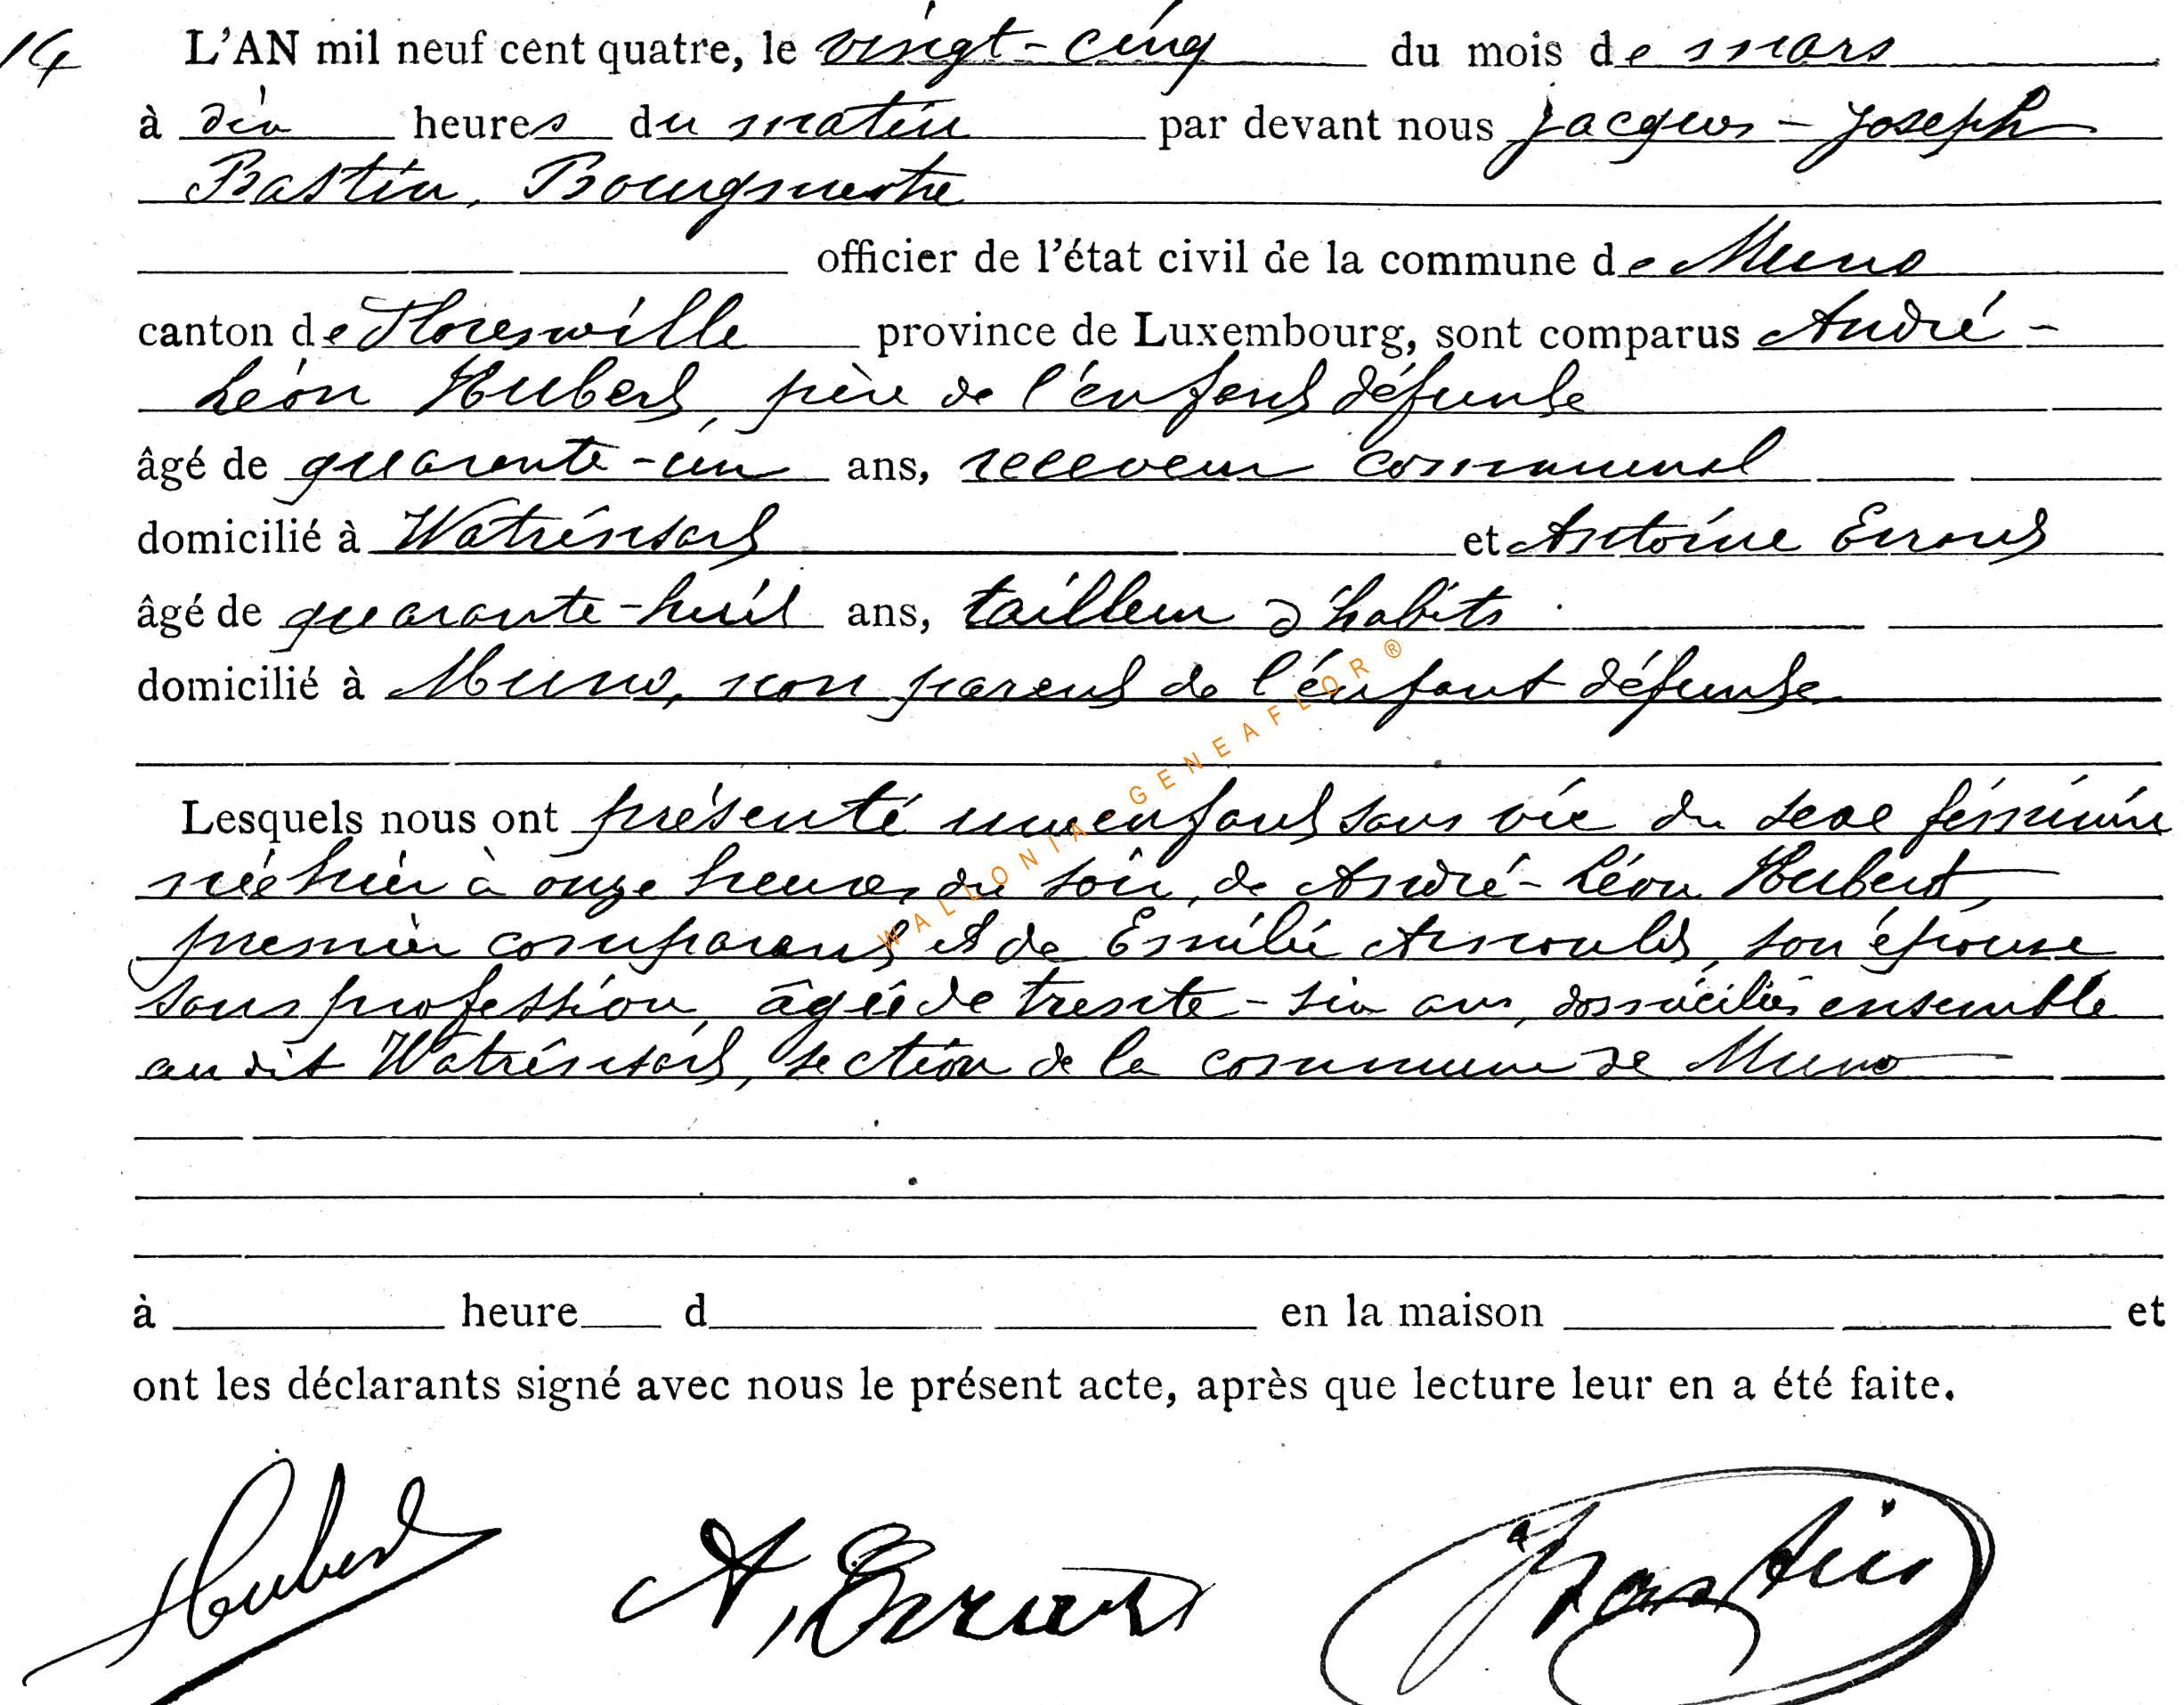 14 L'AN mil neuf cent quatre, le vingt-cinq du mois de mars
à dix heures du matin par devant nous Jacques-Joseph
Bastin, Bourgmestre
officier de l'état civil de la commune de Muno
canton de Florenville province de Luxembourg, sont comparus André-
Léon Hubert, père de l'enfant défunte
âgé de quarante-un ans, receveur communal
domicilié à Watrinsart et Antoine
âgé de quarante-huit ans, tailleur d'habits
domicilié à Muno, non parent de l'enfant défunte
Lesquels nous ont présenté un enfant sans vie du sexe féminin
né hier à onze heures du soir, de André-Léon Hubert,
premier comparant et de Emilie Arnould, son épouse
sans profession, âgée de trente-six ans, domiciliés ensemble
au dit Watrinsart, section de la commune de Muno
à heure d en la maison et
ont les déclarants signé avec nous le présent acte, après que lecture leur en a été faite.
Hubert A, Bastin
WALLONIA GENEAFLOR ®